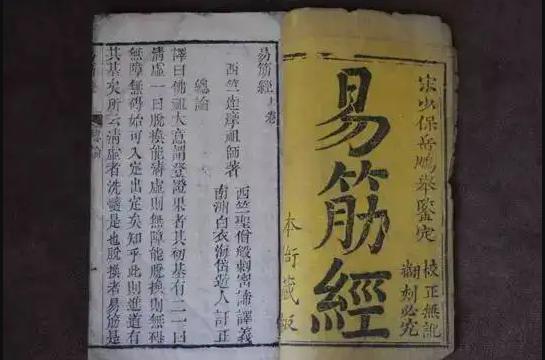 宋少保岳鵬舉鑒定
易筋經
校正無訛
翻刻必究
本衙藏板
易筋經上卷
西竺達摩祖師著
西竺聖僧般剌密諦譯義
南洲白衣海岱遊人訂正
總論
譯曰佛祖大意謂登證果者其初基有二一曰
清虛一曰脫換能清虛則無障能脫換則無碍
無障無碍始可入定出定矣知乎此則進道有
其基矣所云清虛者洗髓是也脫換者易筋是
總論